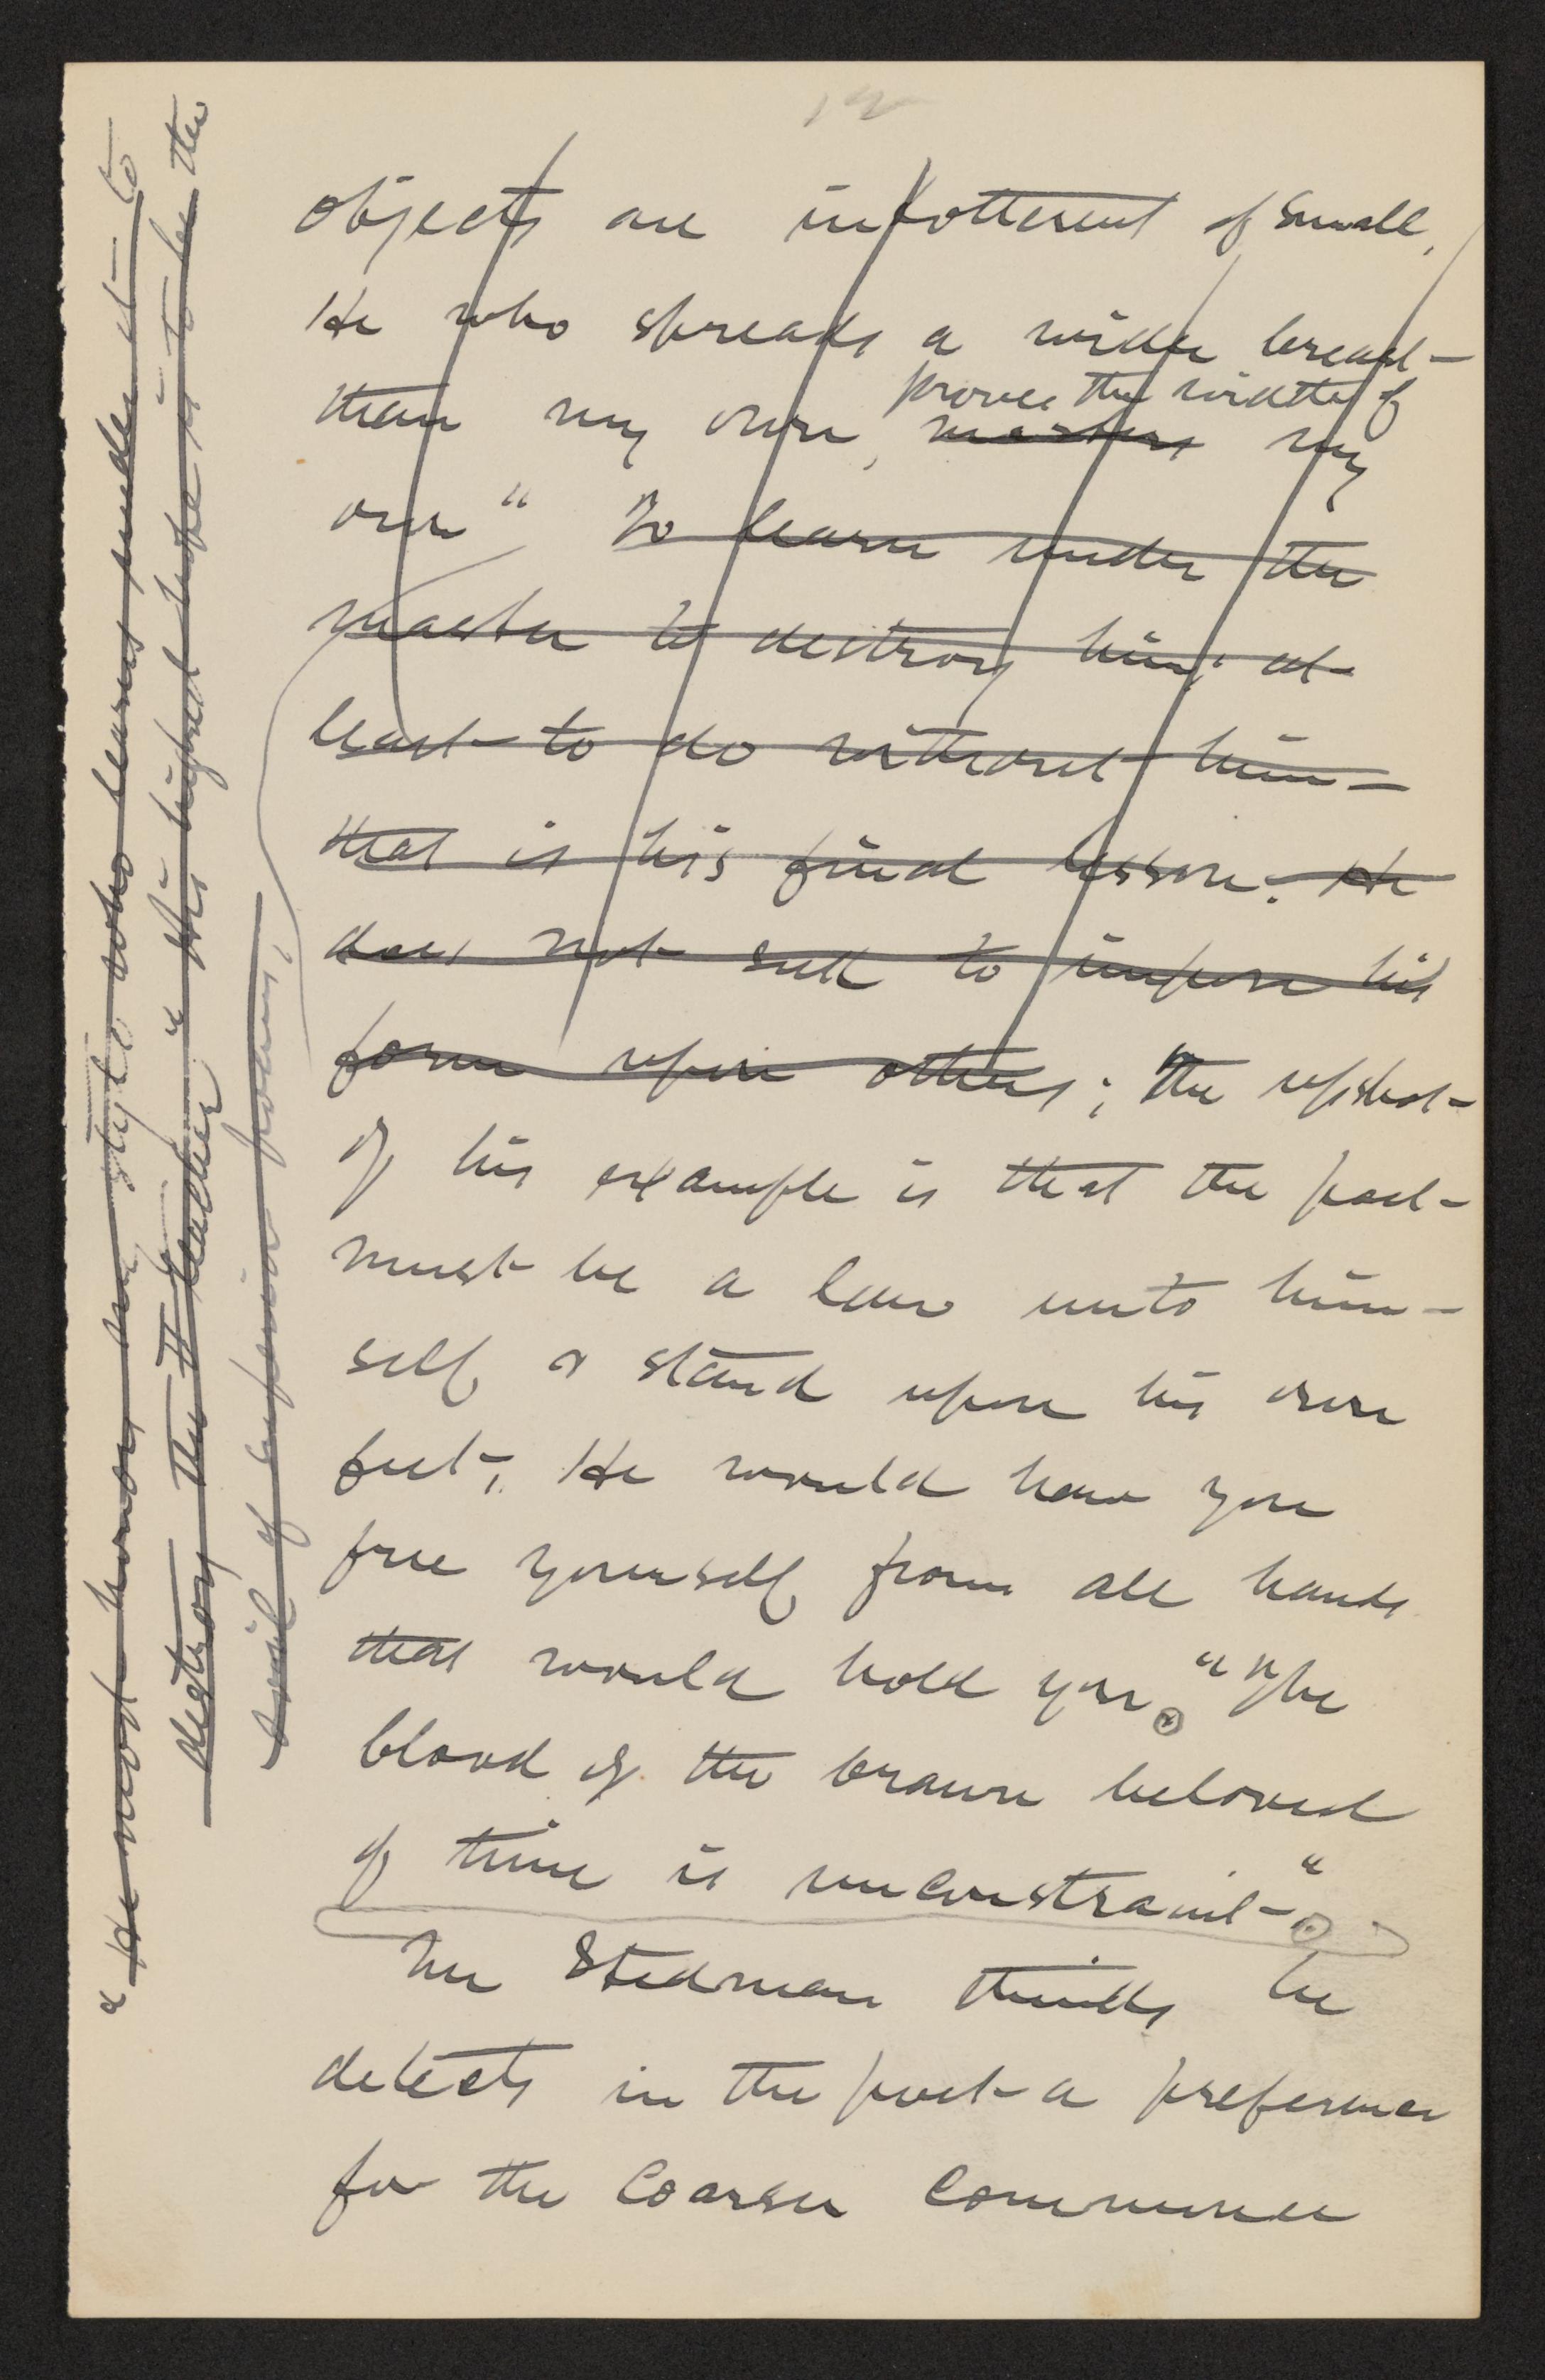 12
objects are in
of small.
He who spreads a wider breast
than my own, proves the width of my
own" To learn under the
master to destroy him; at
least to do without him—
that is his final lesson. He
does not seek to impose his
form upon others; The upshot
of his example is that the poet
must be a law unto him-
self & stand upon his own
feet; He would have you
free yourself from all hands
that would hold you. "The
blood of the brawn beloved
of time is unconstraint"
Mr Stedman thinks he
detects in the poet a preference
for the Coarser Commoner
"He most honors my style who learns under it to
destroy the teacher" "His highest hope is to be the
soil of superior poems.